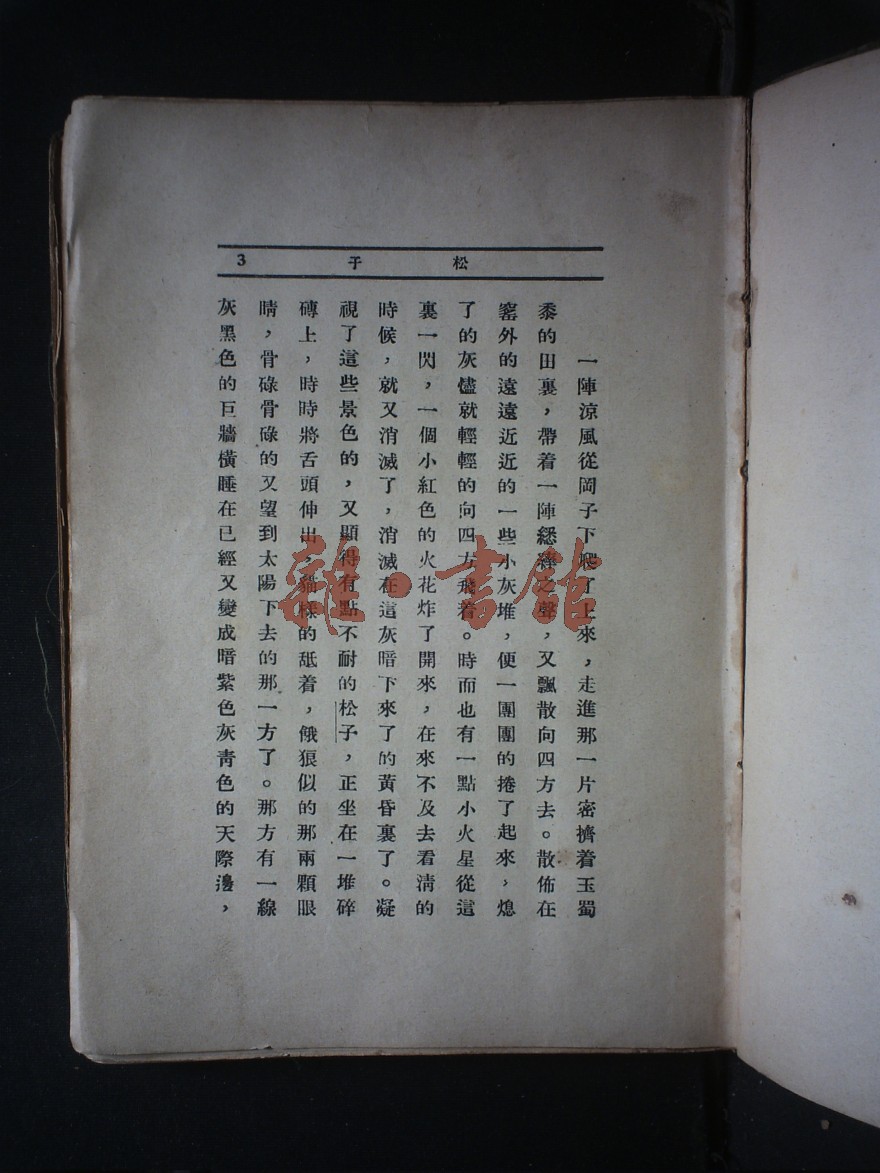 松子 3
一陣涼風從岡子下爬了上來，走進那一片密擠着玉蜀
黍的田裏，帶着一陣綹縩之聲，又飄散向四方去。散佈在
窰外的遠遠近近的一些小灰堆，便一團團的捲了起來，熄
了的灰儘就輕輕的向四方飛着。時而也有一點小火星從這
裏一閃，一個小紅色的火花炸了開來，在來不及去看清的
時候，就又消滅了，消滅在這灰暗下來了的黃昏裏了。凝
視了這些景色的，又顯得有點不耐的松子，正坐在一堆碎
磚上，時時將舌頭伸出，貓樣的舐着，餓狼似的那兩顆眼
睛，骨碌骨碌的又望到太陽下去的那一方了。那方有一線
灰黑色的巨牆橫睡在已經又變成暗紫色灰靑色的天際邊，
雜·書館